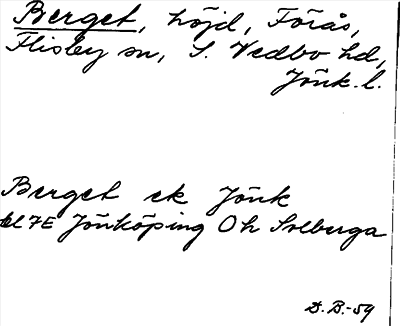 Berget, höjd, Förås,
Flisby sn, S. Vedbo hd,
Jönk. l.
Berget ek Jönk
bl 7E Jönköping Öh Solberga
D. B. -59